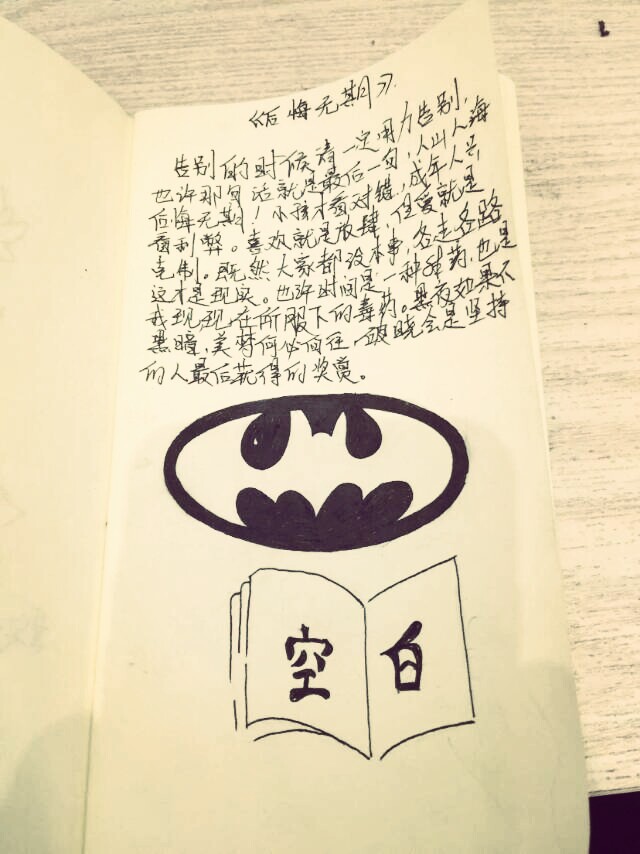 《后悔无期》
告别的时候请一定用力告别,
也许那句话就是最后一句,人山人海
后悔无期!小孩才看对错,成年人只
看利弊。喜欢就是放肆,但爱就是
克制。既然大家都没本事,各走各路
这才是现实。也许时间是一种解药,也是
我现现在所服下的毒药。黑夜如果不
黑暗,美梦何必向往,破晓会是坚持
的人最后获得的奖赏。
空白